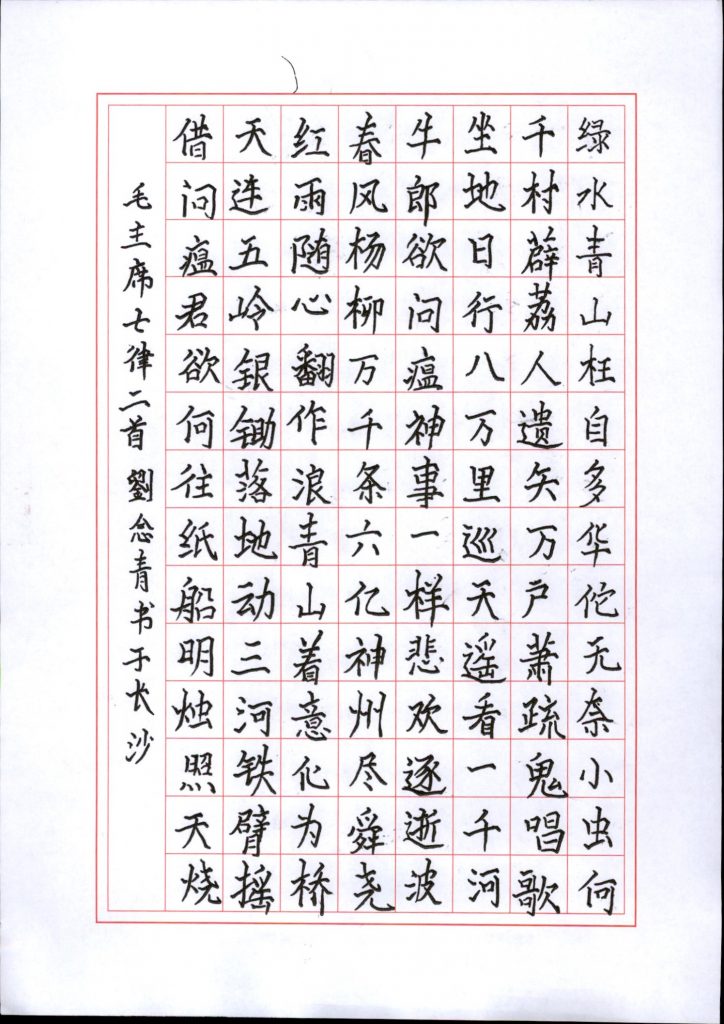 绿水青山枉自多华佗无奈小虫何
千村薜荔人遗矢万户萧疏鬼唱歌
坐地日行八万里巡天遥看一千河
牛郎欲问瘟神事一样悲欢逐逝波
春风杨柳万千条六亿神州尽舜尧
红雨随心翻作浪青山着意化为桥
天连五岭银锄落地动三河铁臂摇
借问瘟君欲何往纸船明烛照天烧
毛主席七律二首劉念青书于长沙